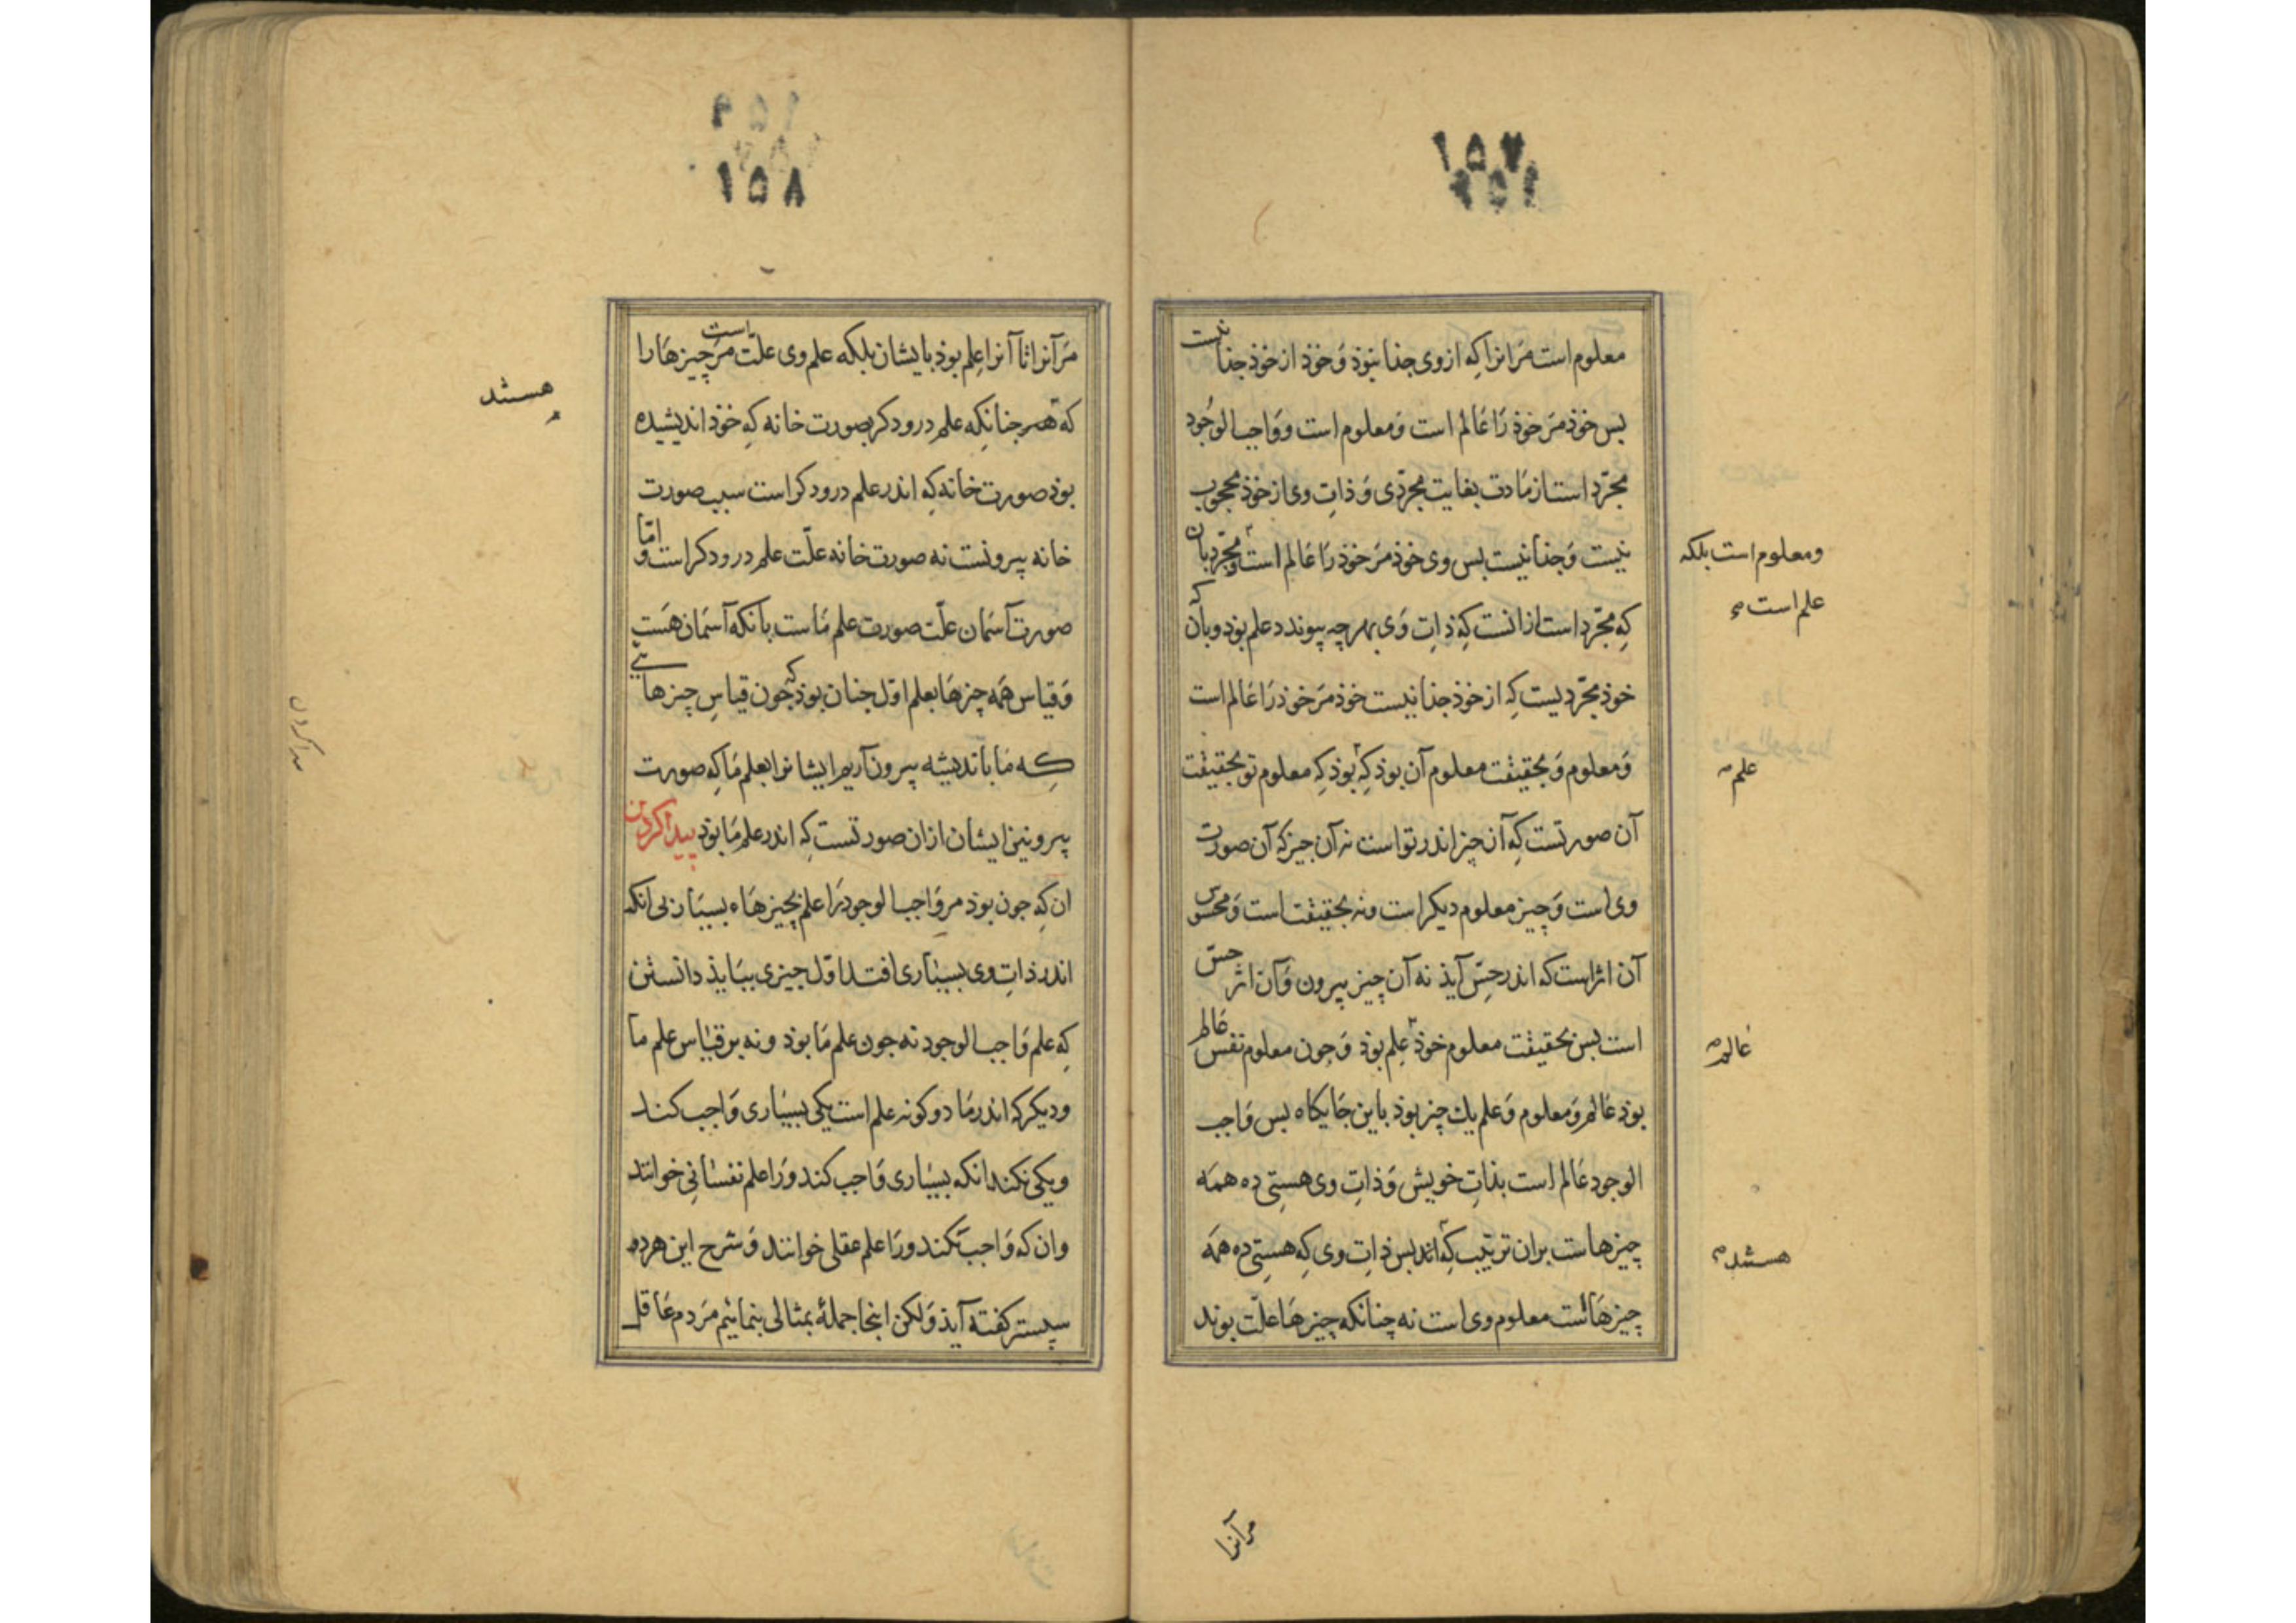 ۱۵۷
معلوم است مَرانرا کِه از وی جذا نبوذ وَ خوذ از خوذ جذا نیست
بس خوذ مَر خوذ رَا عَالم است وَ معلوم است وَ وَاجب الوجُود
مجرّد است از مَادت بغایت مجرّدی وَ ذاتِ وی از خوذ محجوب
نیست وَ جذا نیست بس وی خوذ مَر خوذ رَا عَالم است و مجرّد بان
ومعلوم است بلکه
علم است
کِه مجرّد است از انست کِه ذاتِ وَی بهرچه پیوندد علم بوذ و بآن که
خوذ مجرّدیست کِه از خوذ جذا نیست خوذ مَر خوذ رَا عَالم است
وَ معلوم وَ بحقیقت معلوم آن بوذ کِه بوذ کِه معلوم تو بحقیقت
علم
آن صورتست کِه آن چیز اندر تو است نه آن چیز که آن صورت
وی است وَ چیز معلوم دیکر است و نه بحقیقت است وَ محسوس
آن اثر است که اندر حِسّ آیذ نه آن چیز بیرون وَ آن اثر حسّ
است بس بحقیقت معلوم خوذ علم بوذ وَ جون معلوم نفس عَالم
عَالم
بوذ عَالم وَ معلوم وَ علم یك چیز بوذ باین جَایکاه بس وَاجب
الوجود عَالم است بذاتِ خویش وَ ذاتِ وی هستی ده همَه
چیزهاست بران ترتیب کِه اند بس ذاتِ وی کِه هستِی ده همَه
هستند
چیزهَاست معلوم وی است نه چنانکه چیزهَا علّت بوند
مرآنرا
۱۵۸
مَر آنرا تا آنرا عِلم بوذ بایشان بلکه علم وی علّت است مَر چیزهَا را
که هستند جنانکِه علم درودکر بصورت خانه کِه خوذ اندیشیده
هستند
بوذ صورت خانه کِه اندر علم درودکر است سبب صورت
خانه بیرونست نه صورت خانه علّت علم درودکر است و امّا
صورت آسمَان علّت صورت علم مَاست بانکه آسمَان هَست
وَ قیاس همَه چیزهَا بعلم اوّل جنان بوذ که جون قیاسِ چیزهائی
کِه مَا باندیشه بیرون آریم ایشانرا بعلم مَا کِه صورت
بیرونین ایشان ازان صورتست کِه اندر علم مَا بوذ پیدا کردن
ان کِه جون بوذ مر وَاجب الوجود رَا علم بچیزهَاء بسیَار بی انکه
اندر ذاتِ وی بسیَاری افتد اوّل چیزی ببَایذ دانستن
کِه علم وَاجب الوجود نه جون علم مَا بوذ و نه بر قیَاس علم ما
و دیکر که اندر مَا دو کونه علم است یکی بسیَاری وَاجب کند
و یکی نکند انکه بسیَاری وَاجب کند وَرَا علم نفسَانِی خوانند
وان که وَاجب نکند ورَا علم عقلی خوانند وَ شرح این هر دو
سپستر کفته آیذ وَ لکن اینجا جملهٔ بمثالی بنمائیم مَردم عَاقل